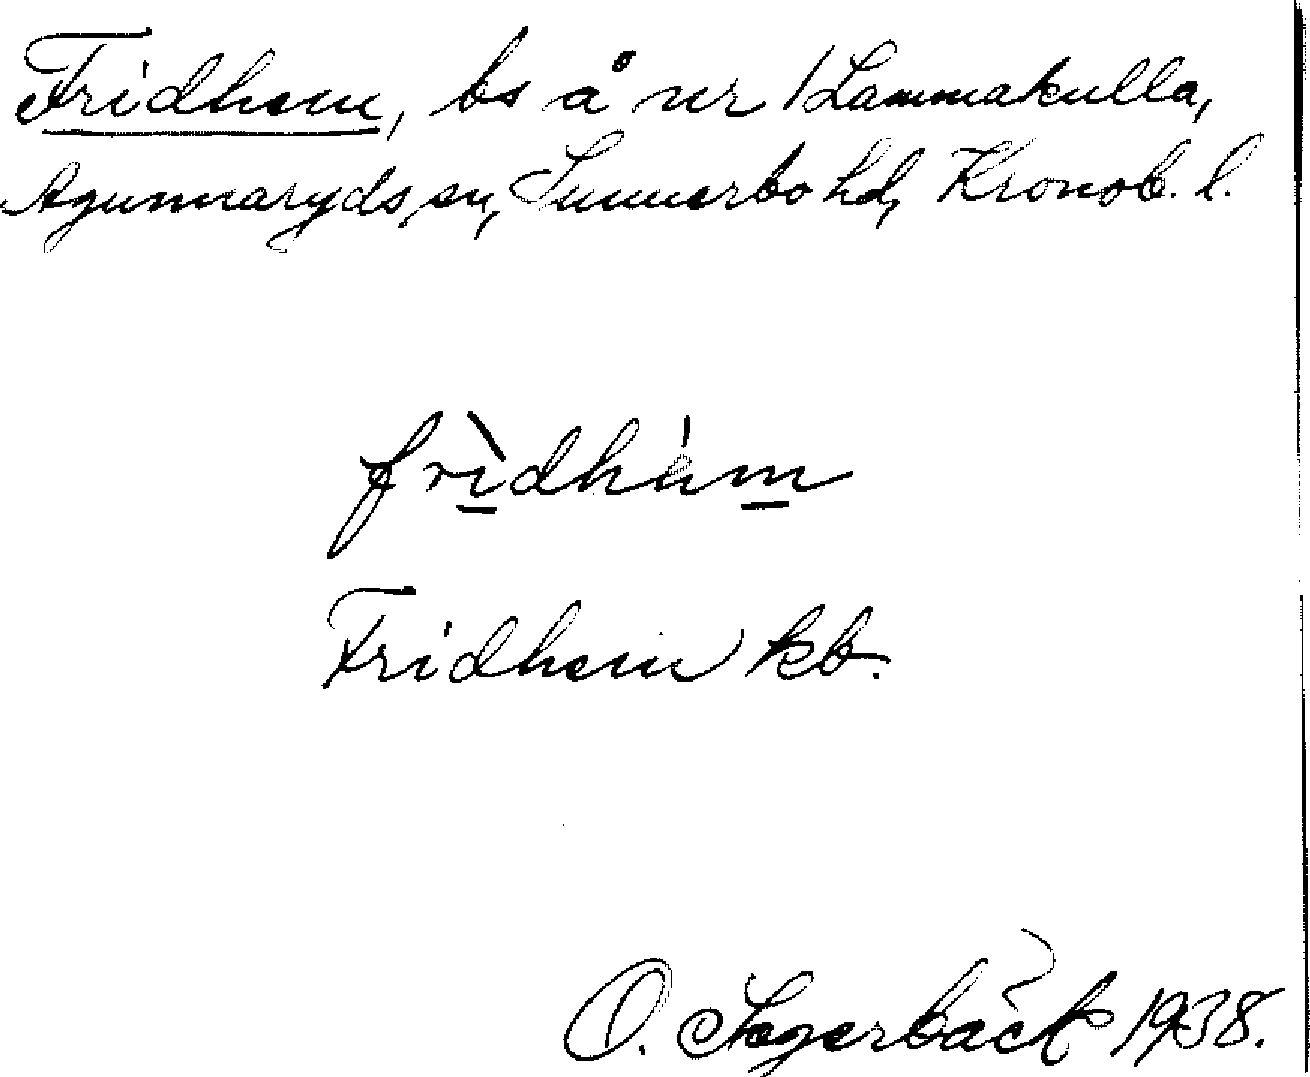 Fridhem, bs å nr 1 Lammakulla,
Agunnaryds sn, Sunnerbo hd, Kronob. l.
fridhäm
Fridhem kb.
O. Sagerbäck 1938.